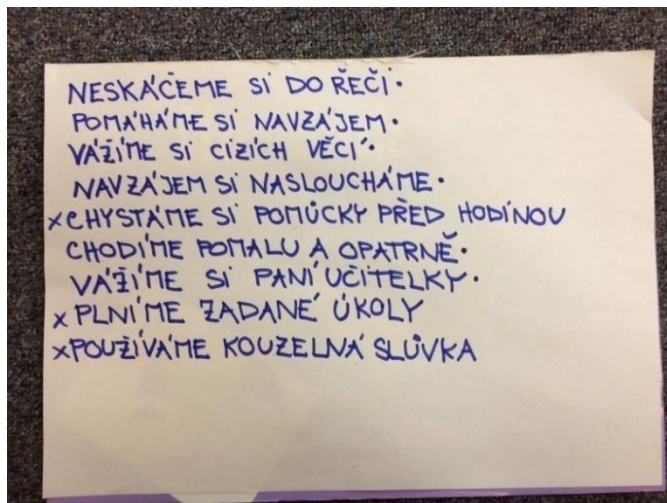 NESKÁČEME SI DO ŘEČI.
POMÁHÁME SI NAVZÁJEM.
VÁŽÍME SI CIZÍCH VĚCÍ.
NAVZÁJEM SI NASLOUCHÁME.
xCHYSTÁME SI POMŮCKY PŘED HODINOU
CHODÍME POMALU A OPATRNĚ.
VÁŽÍME SI PANÍ UČITELKY.
x PLNÍME ZADANÉ ÚKOLY
xPOUŽÍVÁME KOUZELNÁ SLŮVKA